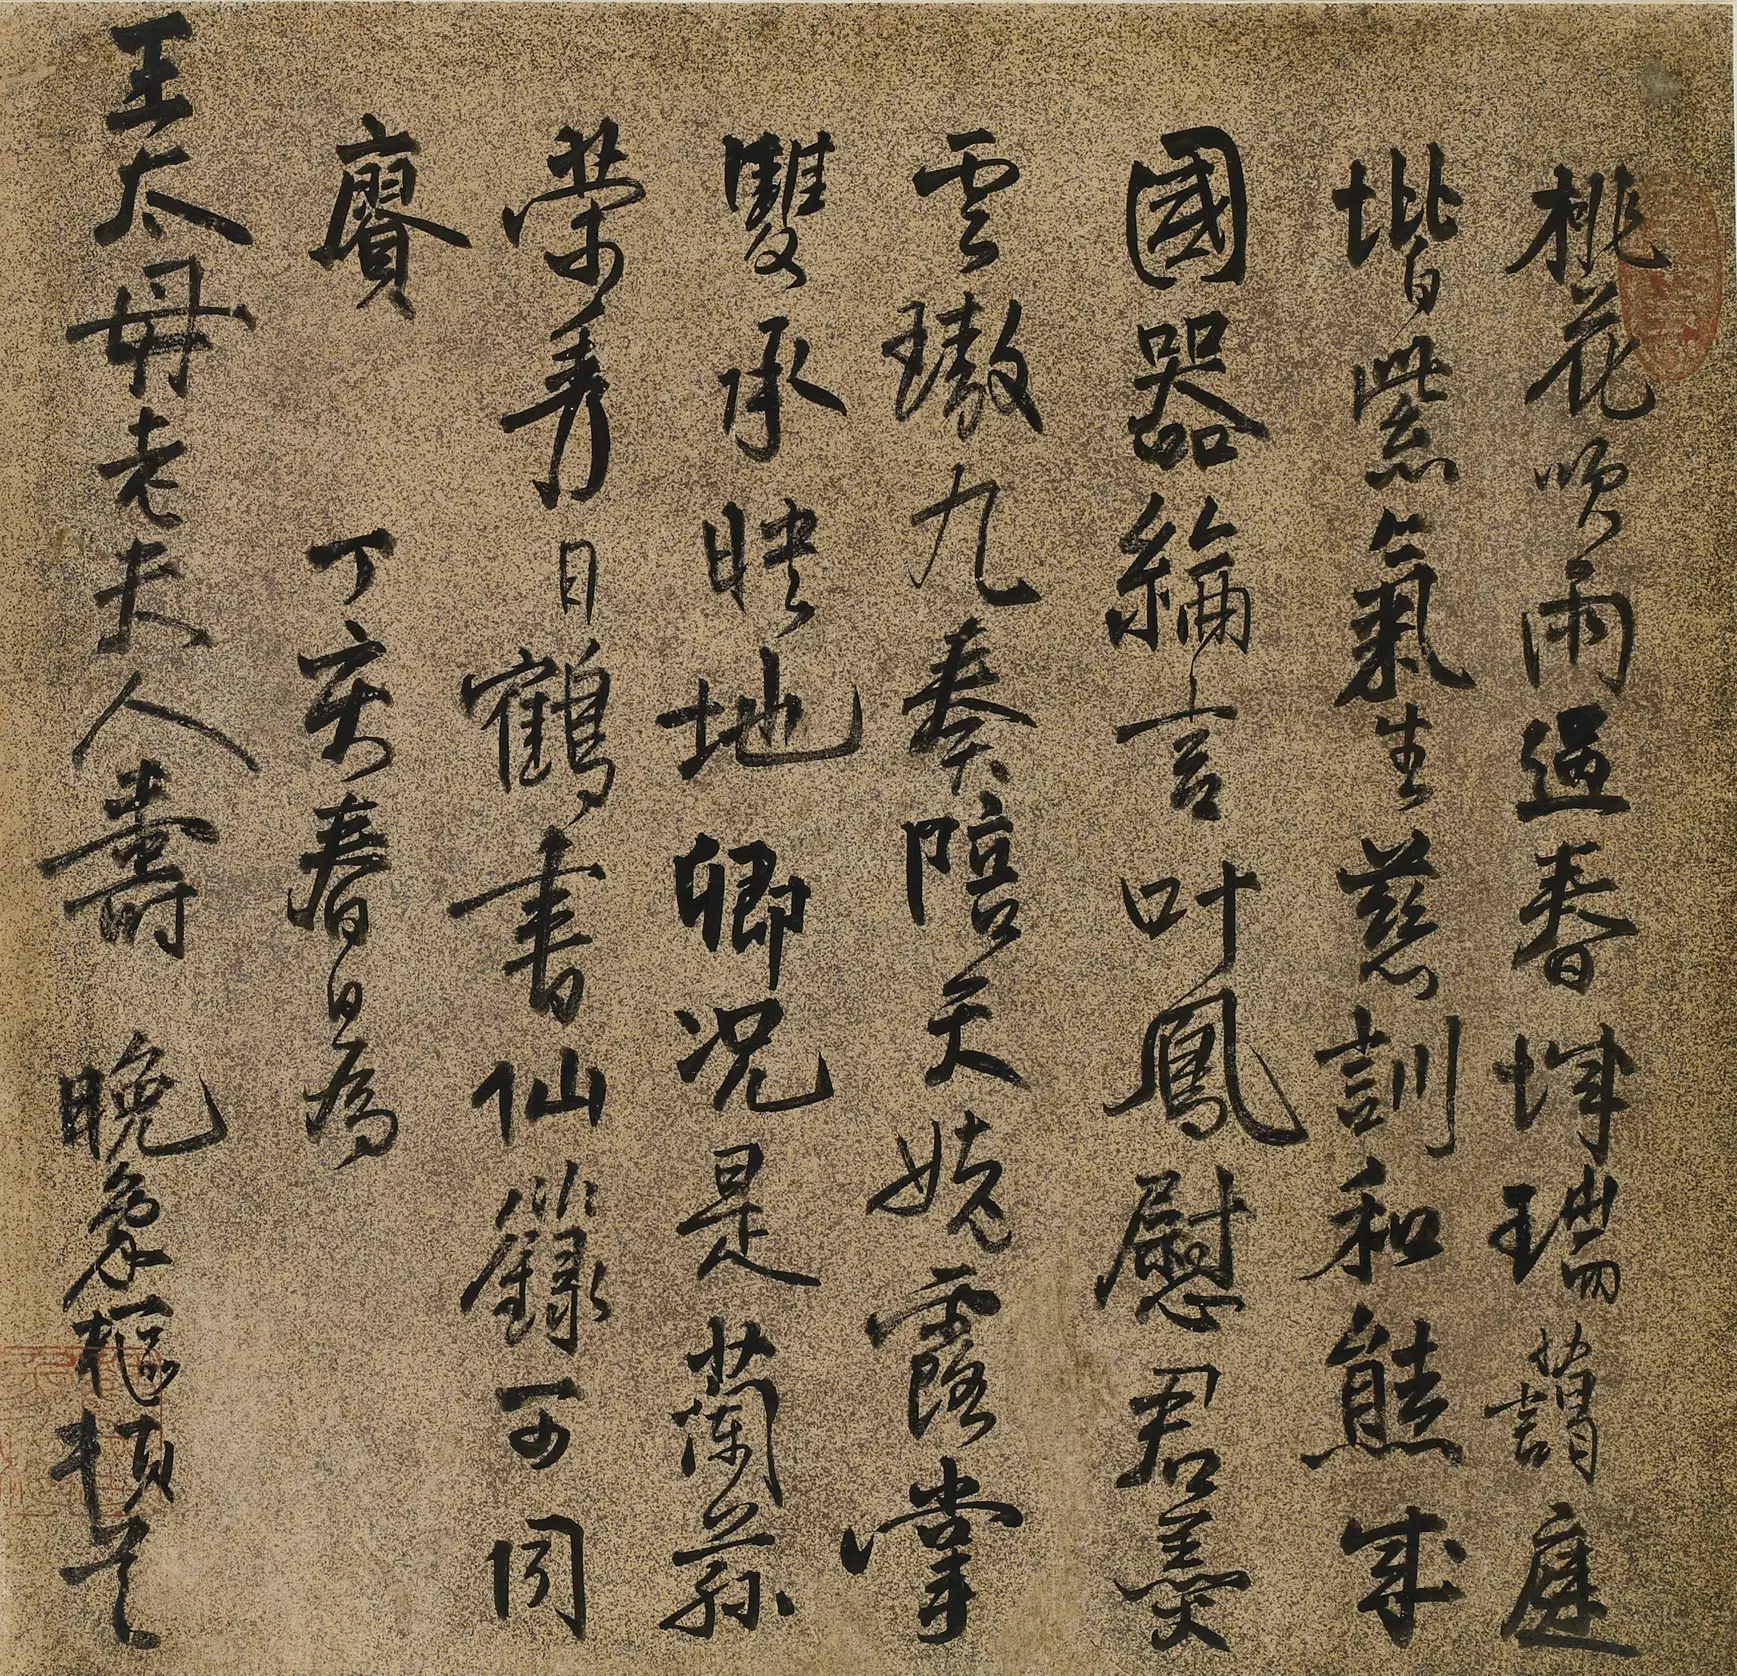 桃花吹雨過春城瑞藹庭
堦紫氣生慈訓和熊成
國器綸言叶鳳慰君羹
雲璈九奏陪天姥露掌
雙承映地卿況是蘭蓀
榮秀日鶴書仙籙可同
賡　丁亥春日為
王太母老夫人壽　晚象樞頓首